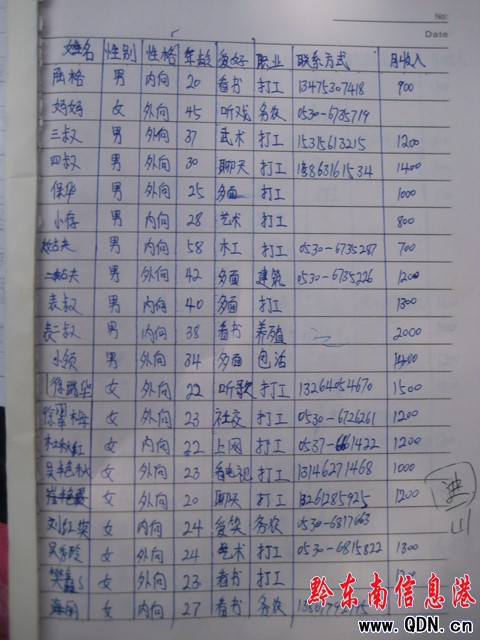 No:
Date
姓名 性别 性格 年龄 爱好 职业 联系方式 月收入
男 内向 20 看书 打工 13475307418 900
妈妈 女 外向 45 听戏 务农 0530-6735719
三叔 男 外向 37 武术 打工 15315613215 1200
四叔 男 外向 30 聊天 打工 15863161534 1400
保华 男 外向 25 多面 打工 1000
小存 男 内向 28 艺术 打工 800
男 内向 58 木工 打工 0530-6735287 700
男 外向 42 多面 建筑 0530-6735226 1200
表叔 男 内向 40 多面 打工 1300
表二叔 男 内向 38 看书 养殖 2000
小领 男 外向 34 多面 包活
女 外向 22 听歌 打工 13264054670 1500
徐翠梅 女 外向 23 社交 打工 0530-6726261 1200
杜秋红 女 内向 22 上网 打工 1200
吴艳秋 女 外向 23 看电视 打工 13146271468 1000
女 外向 20 聊天 打工 1200
刘红英 女 内向 24 务农 0530-6817663
女 外向 24 艺术 打工 0530-6815822 1300
女 外向 23 看书 打工
女 内向 27 看书 务农
黔东南信息港
www.QDN.cn